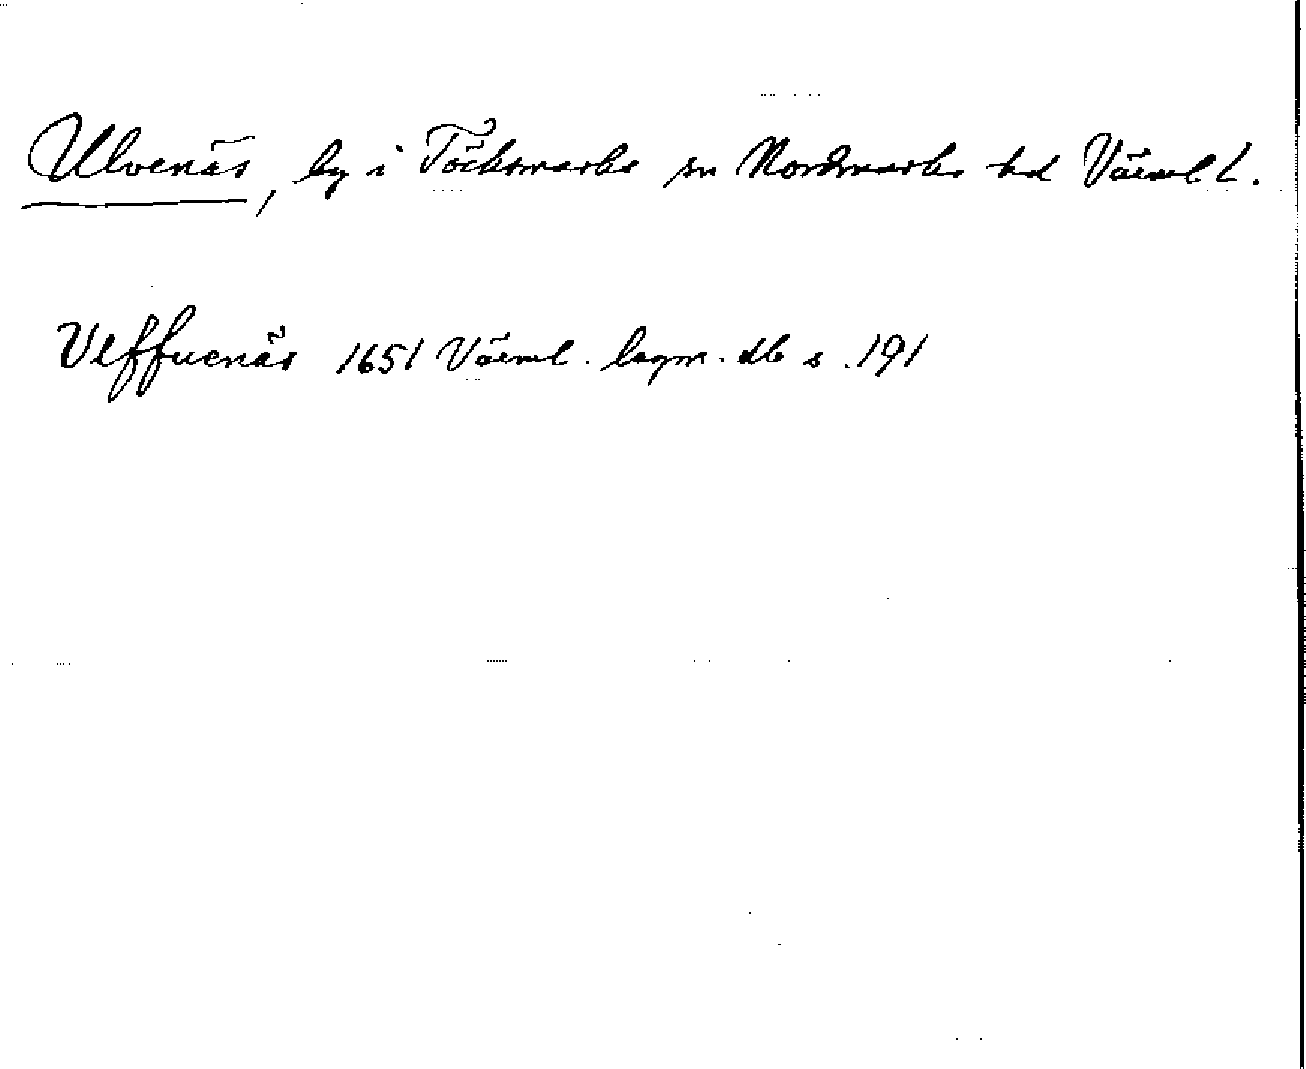 Ulvenäs, by i Töcksmarks sn Nordmarks hd Värml l.
Vlffuenäs 1651 Värml. lagm. db s. 191